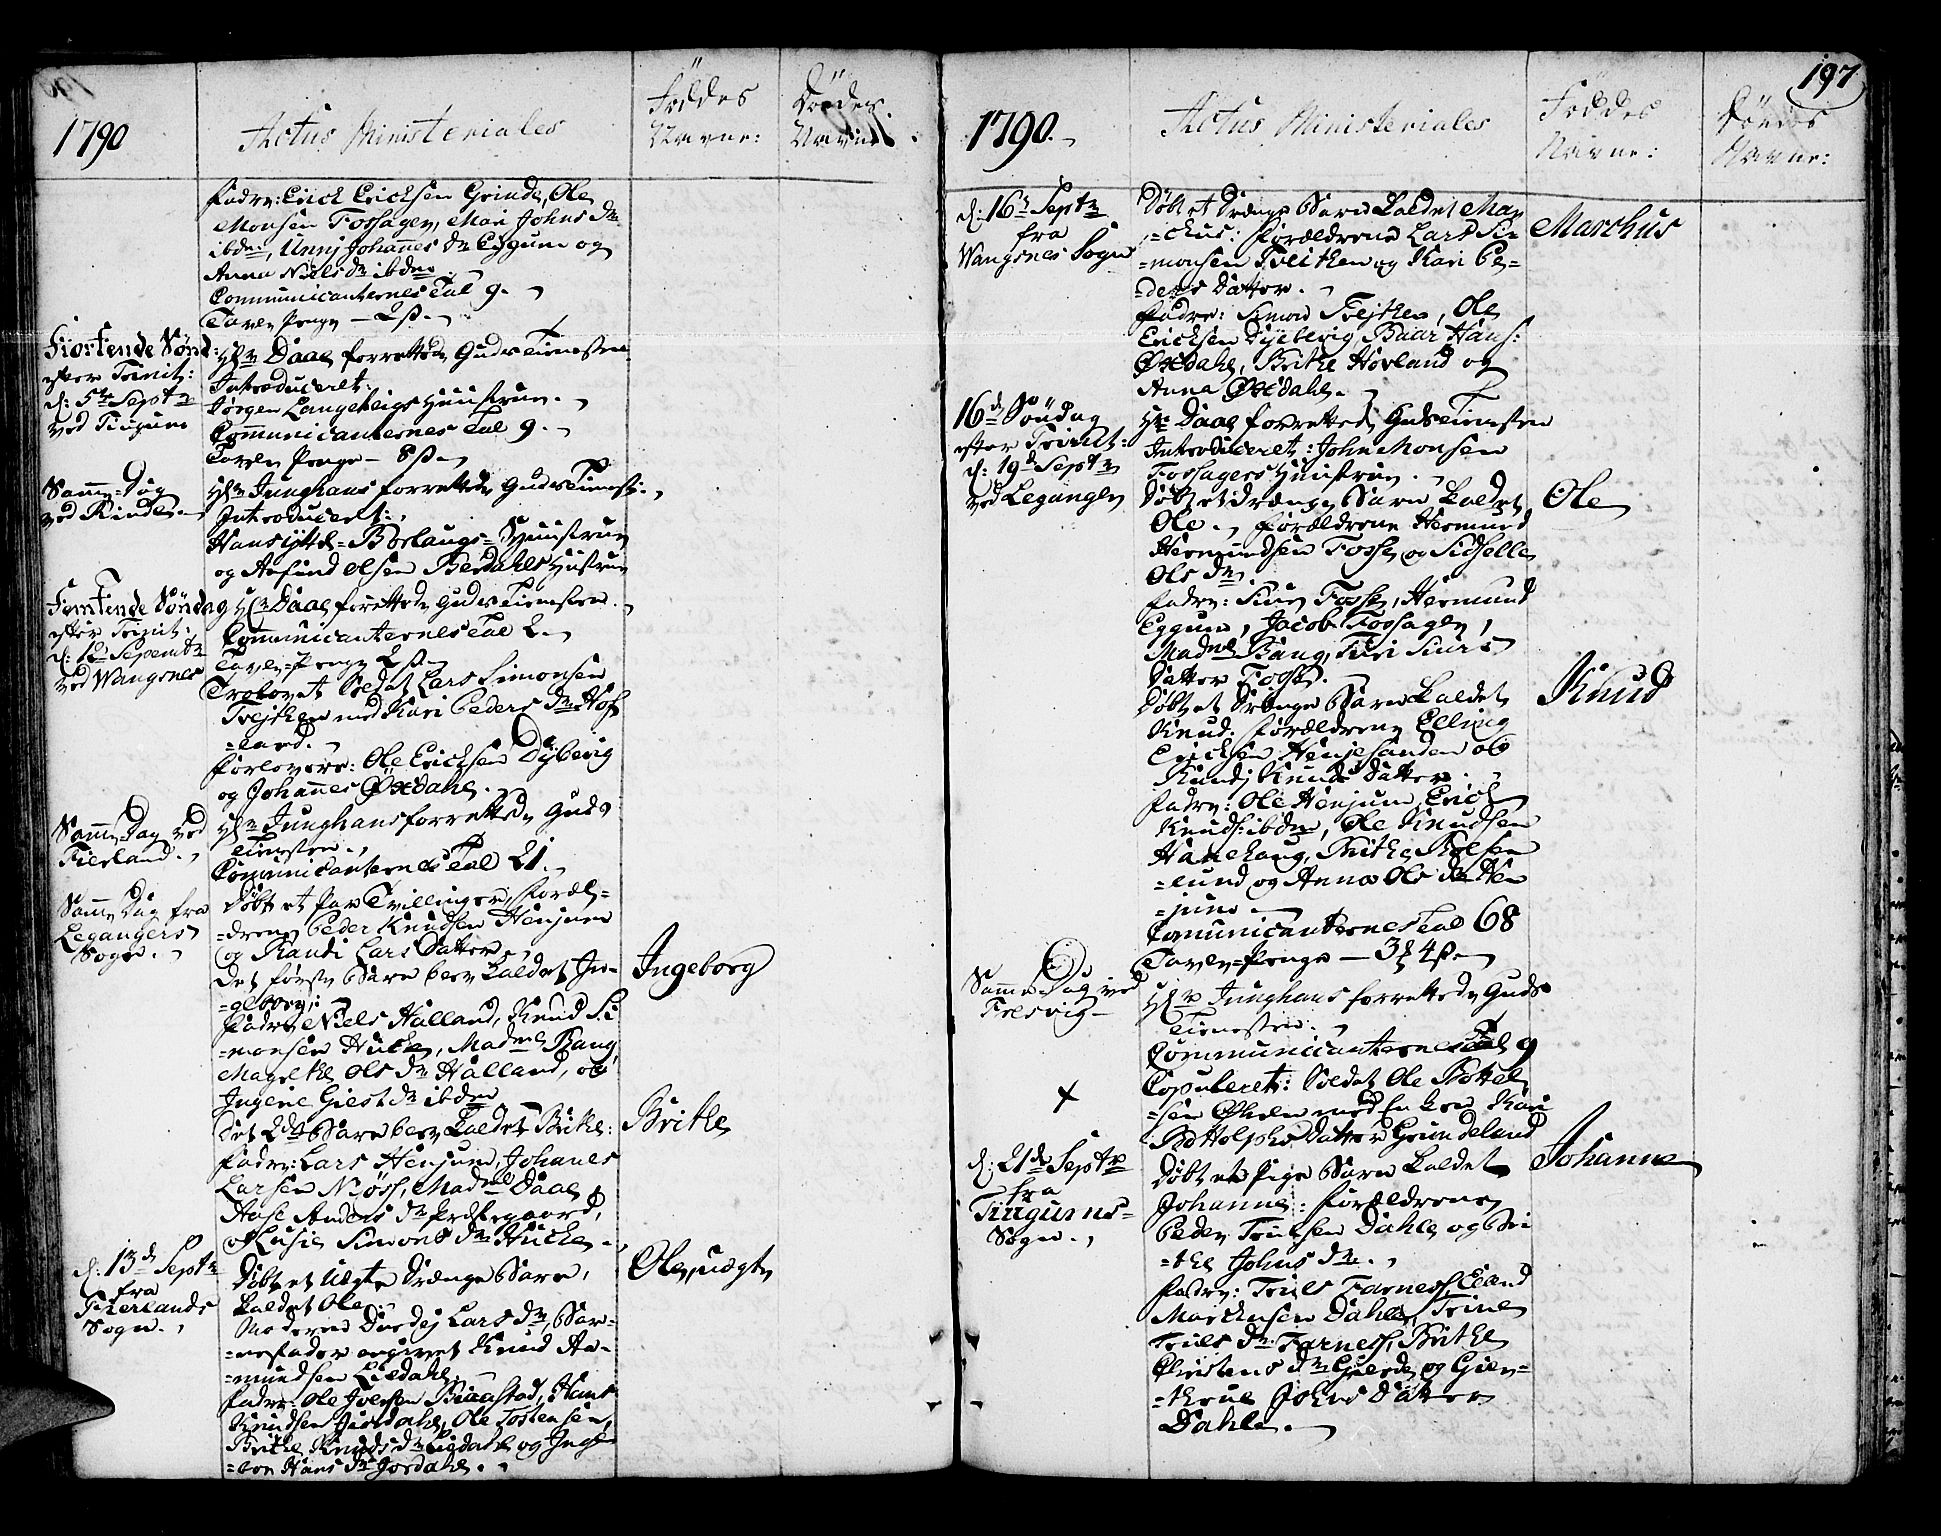 1790
Actus Ministeriales
Föddes
Navne:
Dödes
Navne
Fadre: Erich Erichsen Grinde, Ole
Monsen Fossagen, Mari Johns dr
ibdm, Unni Johanes dr Eggum og
Anna Niels dr ibdm
Communicanternes Tal 9.
Tavle Penge — 2 ß
Fiortende Sönd:
efter Trinit:
d: 5te Septr
ved Tiugum
Hr Daae forrettede Guds Tienesten
Introduceret:
Jörgen Langeteigs Huustrue.
Communicanternes Tal 9.
Tavle Penge — 8 ß
Samme Dag
ved Rinde
Hr Junghans forrettede Guds Tienest:
Introduceret:
Hans Borlaugs Huustrue
og Anfind Olsen Berdahls Hustrue
Femtende Söndag
efter Trinit:
d: 12 Septembr
ved Wangsnes
Hr Daae forrettede Guds Tienesten.
Communicanternes Tal 2.
Tavle-Penge 2 ß
Trolovet Soldat Lars Simonsen
Tvejthen med Kari Peders dr Hof
=land.
Forlovere: Ole Erichsen Dybevig
og Johannes Öxdahl.
Samme Dag ved
Fierland.
Hr Junghans forrettede Guds
Tienesten.
Communicanternes Tal 21.
Samme Dag fra
Legangers
Sogn.
Döbt et Par Tvillinger, Foræl=
=drene Peder Knudsen Henjum
og Randi Lars Datter
Det förste Barn blev kaldet In=
=geborg:
Ingeborg
Fadre Niels Halland, Knud Si
=monsen Hucke, Madme Bang
Magelthe Ols dr Halland, og
Ingerie Giest dr ibdm
Det 2det Barn blev kaldet Brithe:
Brithe
Fadre: Lars Henjum, Johanes
Larsen Njöss, Madme Daae
Aase Anders dr Præstegaard,
og Lusie Simons dr Hucke.
d: 13d Septr
fra
Fierlands
Sogn.
Döbt et Uægte Drænge Barn,
kaldet Ole.
Ole, uægte
Moderen Durdej Lars dr, Bar=
=nefader angivet Knud Am
=mundsen Liedahl.
Fadre: Ole Joensen Skaastad, Hans
Knudsen Jordahl, Ole Tostensen,
Brithe Knuds dr Liedahl og Inge
=bor Hans dr Jordahl.
197
1790.
Actus Ministeriales
Föddes
Navne:
Dödes
Navne:
d: 16d Septr
fra
Wangsnes Sogn
Döbt et Drænge Barn kaldet Mar
=chus: Forældrene Lars Si=
=monsen Tveithen og Kari Pe=
=ders Datter.
Marchus
Fadre: Simon Tvejthen, Ole
Erichsen Dybevig, Baar Hans:
Öxdahl, Brithe Hovland og
Anna Öxdahl.
16d Söndag
efter Trinit:
d: 19d Septr
ved Leganger
Hr Daae forrettede Guds Tienesten
Introduceret: John Monsen
Fossagers Huustrue.
Döbt et Drænge Barn kaldet
Ole. Forældrene Hermund
Hermundsen Fosse og Sidselle
Ols dr.
Ole
Fadre: Siur Fosse, Hermund
Eggum, Jacob Fossagen,
Madme Bang, Turi Siurs
Datter Fosse.
Döbt et Drænge Barn kaldet
Knud. Forældrene Elling
Erichsen Henjesanden og
Randj Knuds Datter.
Knud
Fadre: Ole Henjum, Erich
Knuds: ibdm, Ole Knudsen
Hanehaug, Brithe Skolsen
=lund og Anna Ols dr Hen
=jum.
Comunicanternes tal 68
Tavle=Penge — 3 # 4 ß
Samme Dag ved
Fresvig
Hr Junghans forrettede Guds
Tienesten.
Communicanternes tal 9
Copuleret: Soldat Ole Bottel
=sen Öhrn med Enken Kari
Botholphs Datter Grundeland
d: 21de Septr
fra
Tiugums=
Sogn.
Döbt et Pige Barn kaldet
Johanne: Forældrene
Peder Truelsen Dahle og Bri
=the Johns dr.
Johanne
Fadre: Truls Farness, Eland
Marchusen Dahle, Trine
Truls dr Farness, Brithe
Christens dr Gierde og Gien=
=thrue Johns Datter
Dahle.